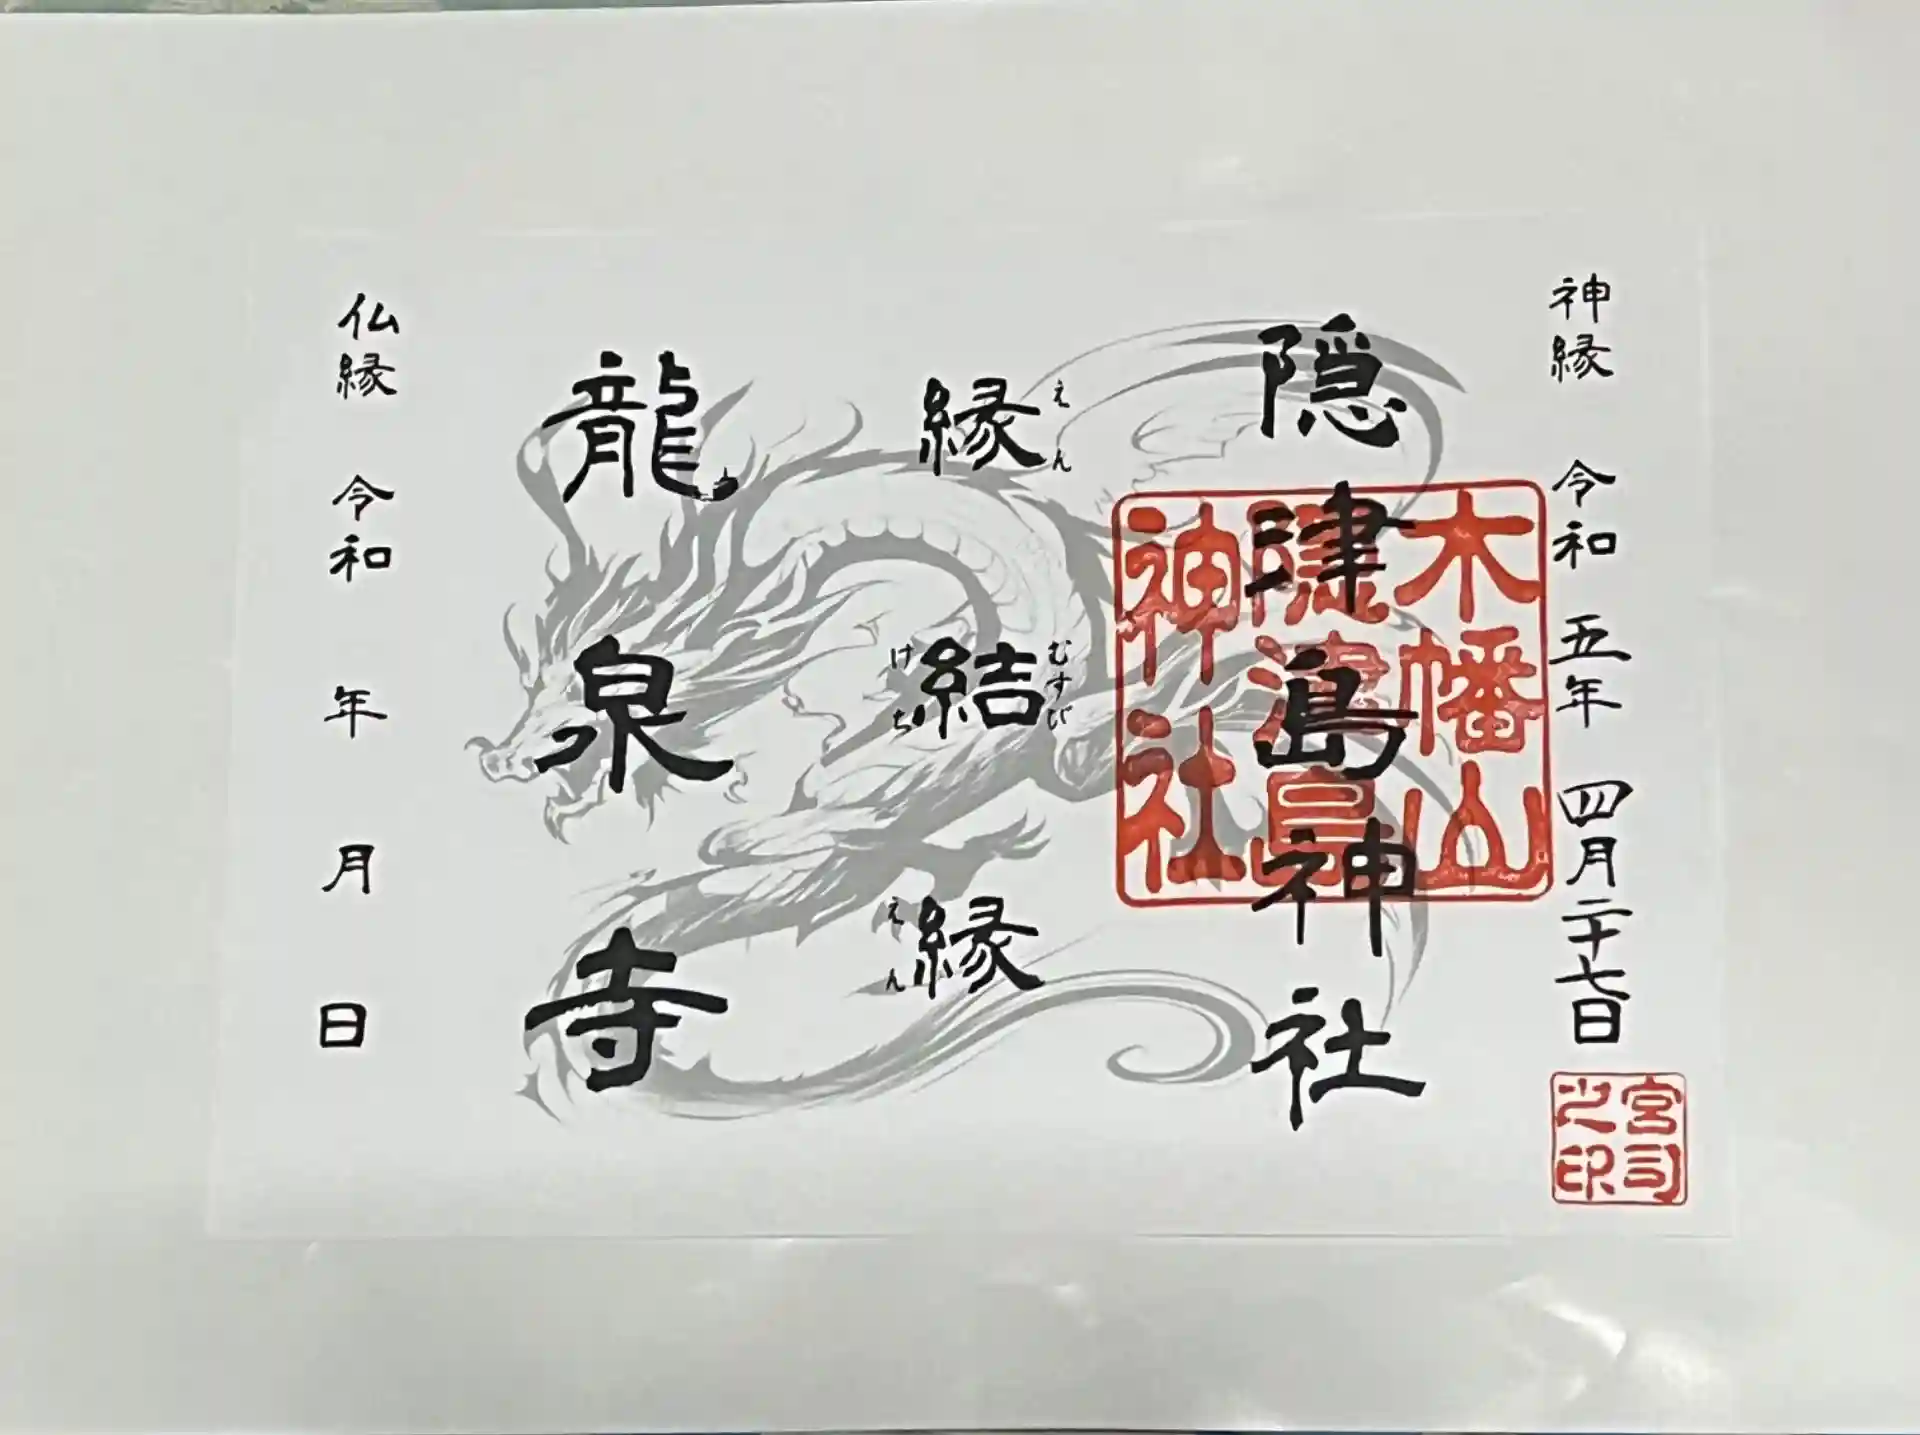 神縁 令和 五年 四月二十七日
宮司
之印
隠津島神社
木幡山
隠津島
神社
縁結縁
えん
むすび
けち
えん
龍泉寺
仏縁 令和 年 月 日